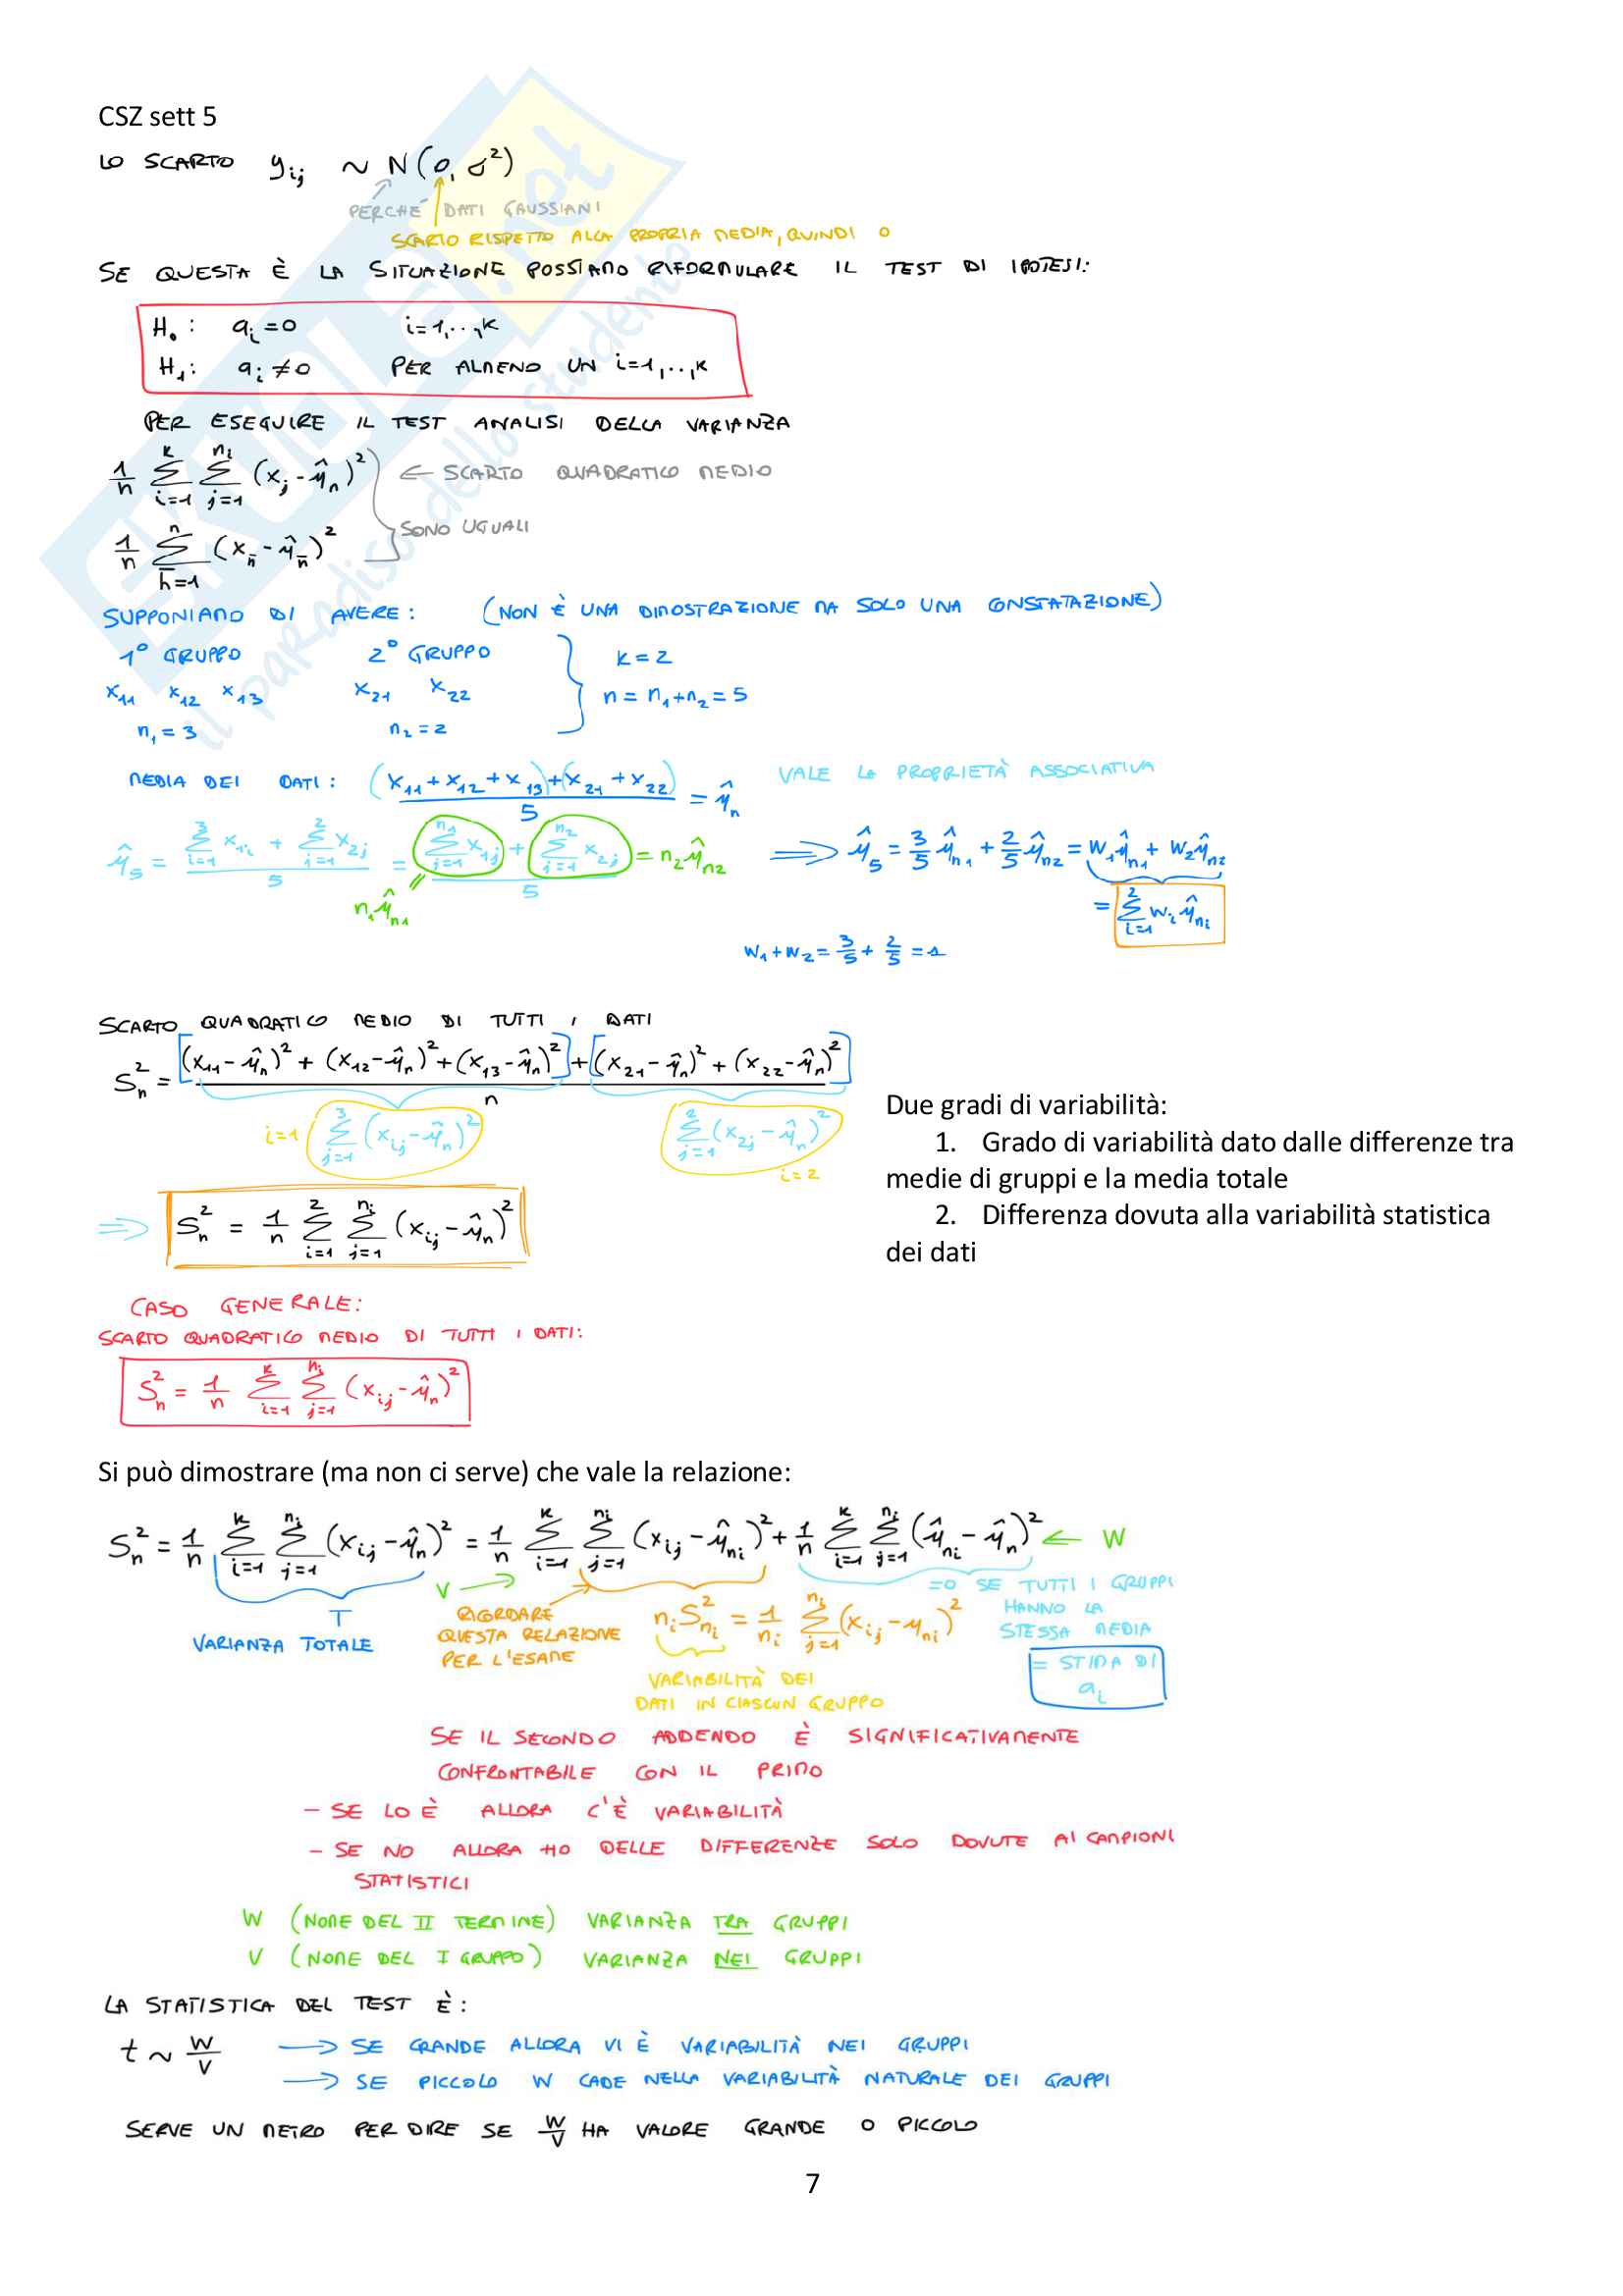 CSZ sett 5
LO SCARTO y_ij ~ N(0, σ²)
PERCHÉ DATI GAUSSIANI
SCARTO RISPETTO ALLA PROPRIA MEDIA, QUINDI 0
SE QUESTA È LA SITUAZIONE POSSIAMO RIFORMULARE IL TEST DI IPOTESI:
H₀: a_i = 0 i=1,..,K
H₁: a_i ≠ 0 PER ALMENO UN i=1,..,K
PER ESEGUIRE IL TEST ANALISI DELLA VARIANZA
1/n Σ_{i=1}^{K} Σ_{j=1}^{n_i} (x_j - μ̂_n)² ← SCARTO QUADRATICO MEDIO
SONO UGUALI
1/n Σ_{h̄=1}^{n} (x_n̄ - μ̂_n̄)²
SUPPONIAMO DI AVERE: (NON È UNA DIMOSTRAZIONE MA SOLO UNA CONSTATAZIONE)
1° GRUPPO 2° GRUPPO K=2
x₁₁ x₁₂ x₁₃ x₂₁ x₂₂ n = n₁+n₂ = 5
n₁ = 3 n₂ = 2
MEDIA DEI DATI: (x₁₁+x₁₂+x₁₃)+(x₂₁+x₂₂) / 5 = μ̂_n VALE LA PROPRIETÀ ASSOCIATIVA
μ̂₅ = (Σ_{i=1}^{3} x_1i + Σ_{j=1}^{2} x_2j) / 5 = (Σ_{j=1}^{n₁} x_1j + Σ_{j=1}^{n₂} x_2j) / 5 = n₂μ̂_n2 ⟹ μ̂₅ = 3/5 μ̂_n1 + 2/5 μ̂_n2 = W₁μ̂_n1 + W₂μ̂_n2
n₁μ̂_n1 = Σ_{i=1}^{2} W_i μ̂_ni
W₁+W₂ = 3/5 + 2/5 = 1
SCARTO QUADRATICO MEDIO DI TUTTI I DATI
S_n² = [(x₁₁-μ̂_n)² + (x₁₂-μ̂_n)² + (x₁₃-μ̂_n)²] + [(x₂₁-μ̂_n)² + (x₂₂-μ̂_n)²] / n
i=1 Σ_{j=1}^{3} (x_ij-μ̂_n)² Σ_{j=1}^{2} (x_2j-μ̂_n)² i=2
⟹ S_n² = 1/n Σ_{i=1}^{2} Σ_{j=1}^{n_i} (x_ij-μ̂_n)²
Due gradi di variabilità:
1. Grado di variabilità dato dalle differenze tra
medie di gruppi e la media totale
2. Differenza dovuta alla variabilità statistica
dei dati
CASO GENERALE:
SCARTO QUADRATICO MEDIO DI TUTTI I DATI:
S_n² = 1/n Σ_{i=1}^{K} Σ_{j=1}^{n_i} (x_ij-μ̂_n)²
Si può dimostrare (ma non ci serve) che vale la relazione:
S_n² = 1/n Σ_{i=1}^{K} Σ_{j=1}^{n_i} (x_ij-μ̂_n)² = 1/n Σ_{i=1}^{K} Σ_{j=1}^{n_i} (x_ij-μ̂_ni)² + 1/n Σ_{i=1}^{K} Σ_{j=1}^{n_i} (μ̂_ni-μ̂_n)² ← W
T
VARIANZA TOTALE
V →
RICORDARE
QUESTA RELAZIONE
PER L'ESAME
n_i S_ni² = 1/n_i Σ_{j=1}^{n_i} (x_ij-μ_ni)²
VARIABILITÀ DEI
DATI IN CIASCUN GRUPPO
=0 SE TUTTI I GRUPPI
HANNO LA
STESSA MEDIA
= STIMA DI
a_i
SE IL SECONDO ADDENDO È SIGNIFICATIVAMENTE
CONFRONTABILE CON IL PRIMO
- SE LO È ALLORA C'È VARIABILITÀ
- SE NO ALLORA HO DELLE DIFFERENZE SOLO DOVUTE AI CAMPIONI
STATISTICI
W (NOME DEL II TERMINE) VARIANZA TRA GRUPPI
V (NOME DEL I GRUPPO) VARIANZA NEI GRUPPI
LA STATISTICA DEL TEST È:
t ~ W/V → SE GRANDE ALLORA VI È VARIABILITÀ NEI GRUPPI
→ SE PICCOLO W CADE NELLA VARIABILITÀ NATURALE DEI GRUPPI
SERVE UN METRO PER DIRE SE W/V HA VALORE GRANDE O PICCOLO
7
SKUOLA.net
il paradiso dello studente